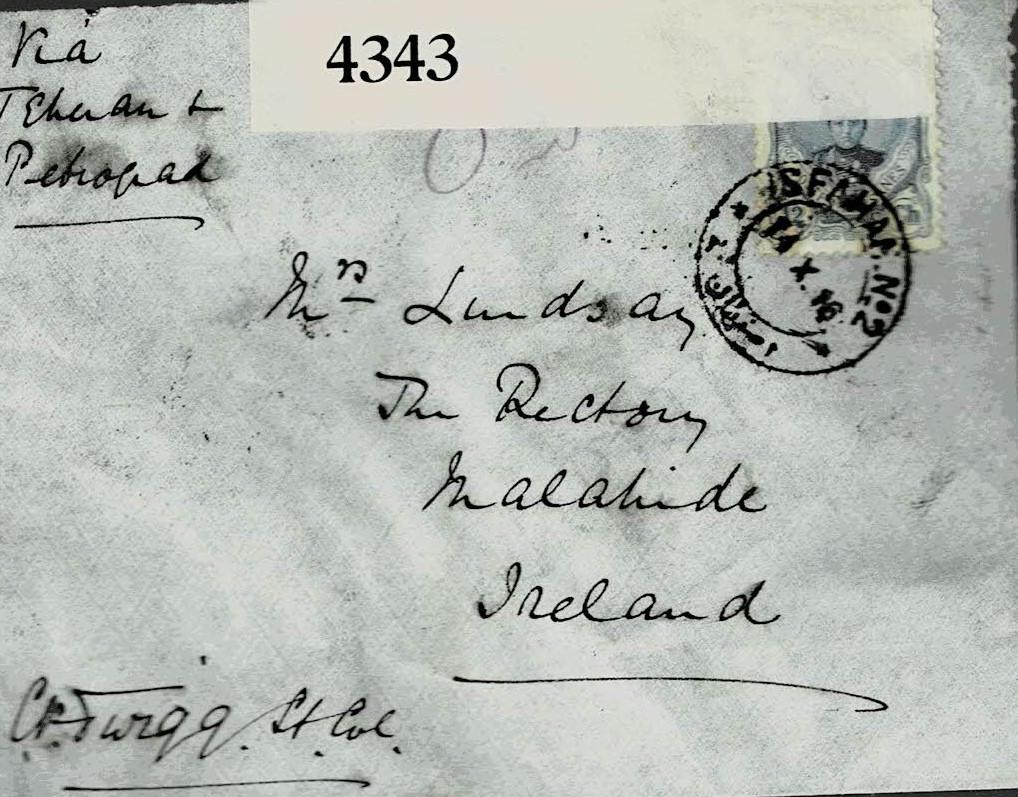 4343
Via
Teheran &
Petrograd
Mrs Lindsay
The Rectory
Malahide
Ireland
ISFAHAN. No 2
14 X. 16
C.R. Twigg. Lt. Col.